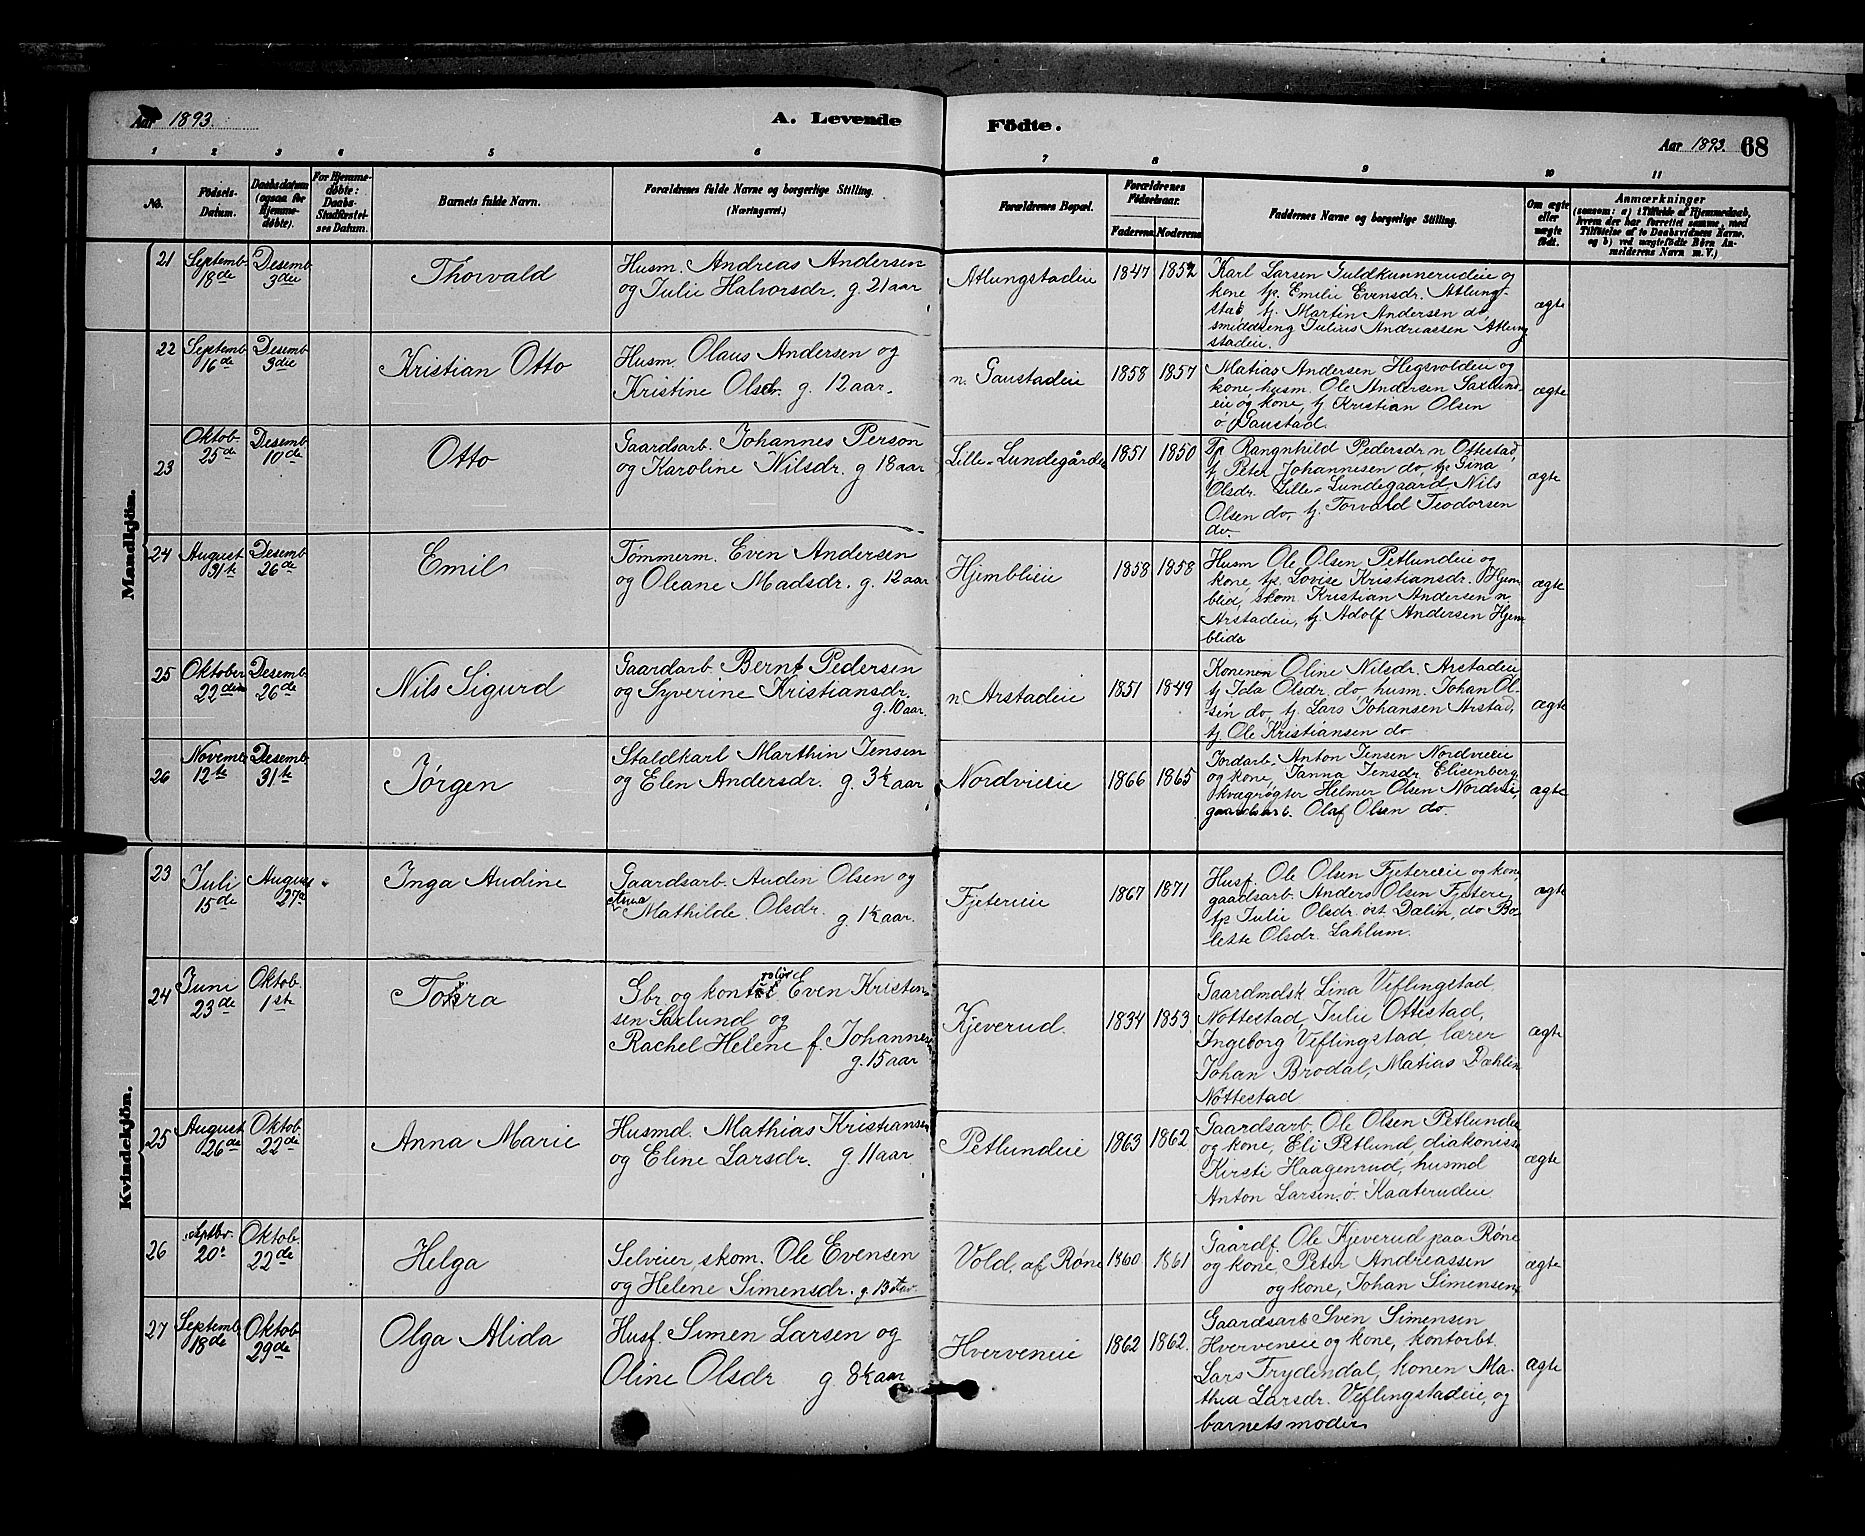 Aar 1893.
A. Levende Fødte.
Aar 1893. 68
1 2 3 4 5 6 7 8 9 10 11
No.
Fødsels-Datum.
Daabsdatum (ogsaa for Hjemmedøbte).
For Hjemmedøbte: Daabs-Stadfæstelses Datum.
Barnets fulde Navn.
Forældrenes fulde Navne og borgerlige Stilling. (Næringsvei.)
Forældrenes Bopæl.
Forældrenes Fødselsaar.
Faderens Moderens
Faddernes Navne og borgerlige Stilling.
Om ægte eller uægte født.
Anmærkninger
(saasom: a) i Tilfælde af Hjemmedaab,
hvem der har forrettet samme, med
Tilføielse af to Daabsvidners Navne,
og b) ved uægtefødte Børn An-
melderens Navn m. V.)
Mandkjøn.
21 Septemb. 18de Desemb. 3die
Thorvald
Husm. Andreas Andersen
og Julie Halvorsdr. g. 21 aar
Atlungstadeie 1847 1852
Karl Larsen Guldkunnerudeie og
kone tp. Emilie Evensdr. Atlung-
stad tj. Martin Andersen do
smeddreng Julius Andreassen Atlung
stadeie.
ægte
22 Septemb. 16de Desemb. 3die
Kristian Otto
Husm. Olaus Andersen og
Kristine Olsdr. g. 12 aar.
n. Gaustadeie 1858 1857
Matias Andersen Hegsvoldeie og
kone, husm. Ole Andersen Saxlund-
eie og kone, tj. Kristian Olsen
ø. Gaustad
ægte
23 Oktob. 25de Desemb. 10de
Otto
Gaardsarb. Johannes Person
og Karoline Nilsdr. g 18 aar
Lille-Lundegården 1851 1850
Tp. Rangnhild Pedersdr. n Ottestad,
tj. Peter Johannesen do, tp. Gina
Olsdr. Lille-Lundegaard, Nils
Olsen do, tj. Torvald Teodorsen
do.
ægte
24 August 31te Desemb. 26de
Emil
Tømmerm. Even Andersen
og Oleane Madsdr. g. 12 aar
Hjemblieie 1858 1858
Husm Ole Olsen Petlundeie og
kone, tp. Lovise Kristiansdr. Hjem
blid, skom. Kristian Andersen n.
Arstadeie, tj. Adolf Andersen Hjem
blide
ægte
25 Oktober 22den Desemb. 26de
Nils Sigurd
Gaardarb. Bernt Pedersen
og Syverine Kristiansdr.
g. 10 aar.
n Arstadeie 1851 1849
Konenen Oline Nilsdr. Arstadeie
tj. Ida Olsdr. do, husm. Johan Ol-
sen do, tj. Lars Johansen Arstad,
tj. Ole Kristiansen do
ægte
26 Novemb. 12te Desemb. 31te
Jørgen
Staldkarl Marthin Jensen
og Elen Andersdr. g. 3½ aar
Nordvieie 1866 1865
Jordarb. Anton Jensen Nordvieie
og kone, Janna Jensdr. Elisenberg,
kvægrøgter Helmer Olsen Nordvie,
gaardsarb. Olaf Olsen do.
ægte
Kvindekjøn.
23 Juli 15de August 27de
Inga Audine
Gaardsarb. Audin Olsen og
Anna Mathilde Olsdr. g. 1½ aar.
Fjetereie 1867 1871
Husf. Ole Olsen Fjetereie og kone,
gaadsarb. Anders Olsen Fjetere,
tp. Julie Olsdr. øst Dælin, do Bo-
lette Olsdr. Lahlum.
ægte
24 Juni 23de Oktob. 1ste
Tora
Gbr og kontrolør Even Kristen-
sen Saxlund og
Rachel Helene f. Johannesen
g. 15 aar
Kjeverud. 1834 1853
Gaardmdsk Lina Veflingstad,
Nøttestad, Julie Ottestad,
Ingeborg Veflingstad, lærer
Johan Brodal, Matias Dæhlin
Nøttestad
ægte
25 August 26de Oktob. 22de
Anna Marie
Husmd. Mathias Kristiansen
og Eline Larsdr. g. 11 aar
Petlundeie 1863 1862
Gaardsarb. Ole Olsen Petlundeie
og kone, Eli Petlund, diakonisse
Kirsti Haagenrud, husmd
Anton Larsen ø. Kaaterudeie
ægte
26 Septbr. 20de Oktob. 22de
Helga
Selveier, skom. Ole Evensen
og Helene Simensdr. g. 13
Vold af Røne 1860 1861
Gaardf. Ole Kjeverud paa Røne
og kone, Peter Andreassen
og kone, Johan Simensen
ægte
27 Septemb. 18de Oktob. 29de
Olga Alida
Husf. Simen Larsen og
Oline Olsdr g. 8½ aar
Hverveneie 1862 1862.
Gaardsarb Sven Simensen
Hverveneie og kone, kontorbt.
Lars Frydendal, konen Ma-
thea Larsdr. Veflingstadeie, og
barnets moder
ægte